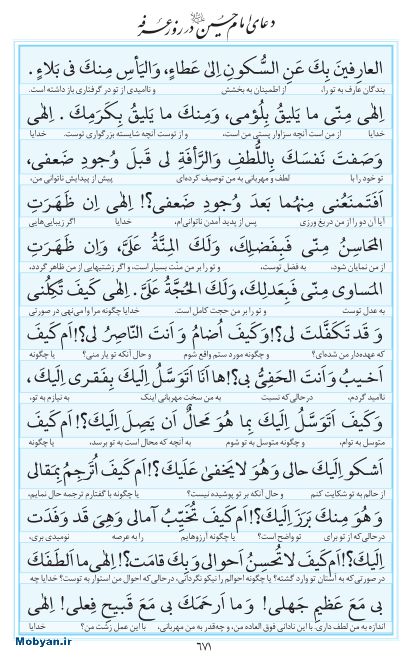 دعای امام حسین در روز عرفه
العارِفينَ بِكَ عَنِ السُّكونِ اِلىٰ عَطاءٍ، وَاليَأسِ مِنكَ فى بَلاءٍ.
بندگان عارف به تو را، از اطمینان به بخشش و ناامیدی از تو در گرفتاری باز داشته است.
اِلٰهى مِنّى ما يَليقُ بِلُؤمى، وَمِنكَ ما يَليقُ بِكَرَمِكَ. اِلٰهى
خدایا از من است آنچه سزاوار پستی من است، و از توست آنچه شایسته بزرگواری توست. خدایا
وَصَفتَ نَفسَكَ بِاللُّطفِ وَالرَّأفَةِ لى قَبلَ وُجودِ ضَعفى،
تو خود را با لطف و مهربانی به من توصیف کرده‌ای پیش از پیدایش ناتوانی من،
اَفَتَمنَعُنى مِنهُما بَعدَ وُجودِ ضَعفى؟! اِلٰهى اِن ظَهَرَتِ
آیا آن دو را از من دریغ ورزی پس از پدید آمدن ناتوانی‌ام، خدایا اگر زیبایی‌هایی
المَحاسِنُ مِنّى فَبِفَضلِكَ، وَلَكَ المِنَّةُ عَلَىَّ، وَاِن ظَهَرَتِ
از من نمایان شود، به فضل توست، و تو را بر من منّت بسیار است، و اگر زشتیهایی از من ظاهر گردد،
المَساوى مِنّى فَبِعَدلِكَ، وَلَكَ الحُجَّةُ عَلَىَّ. اِلٰهى كَيفَ تَكِلُنى
به عدل توست و تو را بر من حجت کامل است. خدایا چگونه مرا وا می‌نهی در صورتی
وَ قَد تَكَفَّلتَ لى؟! وَكَيفَ اُضامُ وَ اَنتَ النّاصِرُ لى؟! اَم كَيفَ
که عهده‌دار من شده‌ای؟ و چگونه مورد ستم واقع شوم و حال آنکه تو یار منی؟ یا چگونه
اَخيبُ وَ اَنتَ الحَفِىُّ بى؟! ها اَنَا اَتَوَسَّلُ اِلَيكَ بِفَقرى اِلَيكَ،
ناامید گردم، درحالی‌که نسبت به من سخت مهربانی اینک به نیازم به تو،
وَ كَيفَ اَتَوَسَّلُ اِلَيكَ بِما هُوَ مَحالٌ اَن يَصِلَ اِلَيكَ؟! اَم كَيفَ
متوسل به توام، و چگونه متوسل به تو شوم به آنچه که محال است به تو برسد، یا چگونه
اَشكو اِلَيكَ حالى وَ هُوَ لا يَخفىٰ عَلَيكَ؟! اَم كَيفَ اُتَرجِمُ بِمَقالى
از حالم به تو شکایت کنم و حال آنکه بر تو پوشیده نیست؟ یا چگونه با گفتارم ترجمه حال نمایم،
وَ هُوَ مِنكَ بَرَزَ اِلَيكَ؟! اَم كَيفَ تُخَيِّبُ آمالى وَ هِىَ قَد وَفَدَت
درحالی که از تو برای تو واضح است؟ یا چگونه آرزوهایم را به عرصه نومیدی بری،
اِلَيكَ؟! اَم كَيفَ لا تُحسِنُ اَحوالى وَ بِكَ قامَت؟! اِلٰهى ما اَلطَفَكَ
در صورتی‌که به آستان تو وارد گشته؟ یا چگونه احوالم را نیکو نگردانی، درحالی‌که احوال من استوار به توست؟ خدایا چه
بى مَعَ عَظيمِ جَهلى! وَ ما اَرحَمَكَ بى مَعَ قَبيحِ فِعلى! اِلٰهى
اندازه به من لطف داری، با این نادانی فوق العاده من، و چه‌قدر به من مهربانی، با این عمل زشت من؟ خدایا
Mobyan.ir
۶۷۱